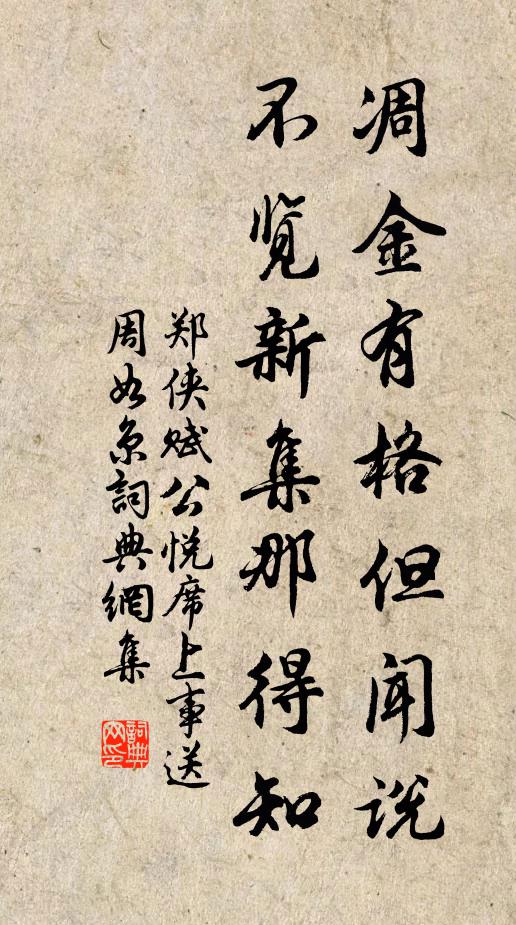 凋金有格但闻说
不览新集那得知
郑侠赋公悦席上事送
周如京詞典網集
詞典
网印